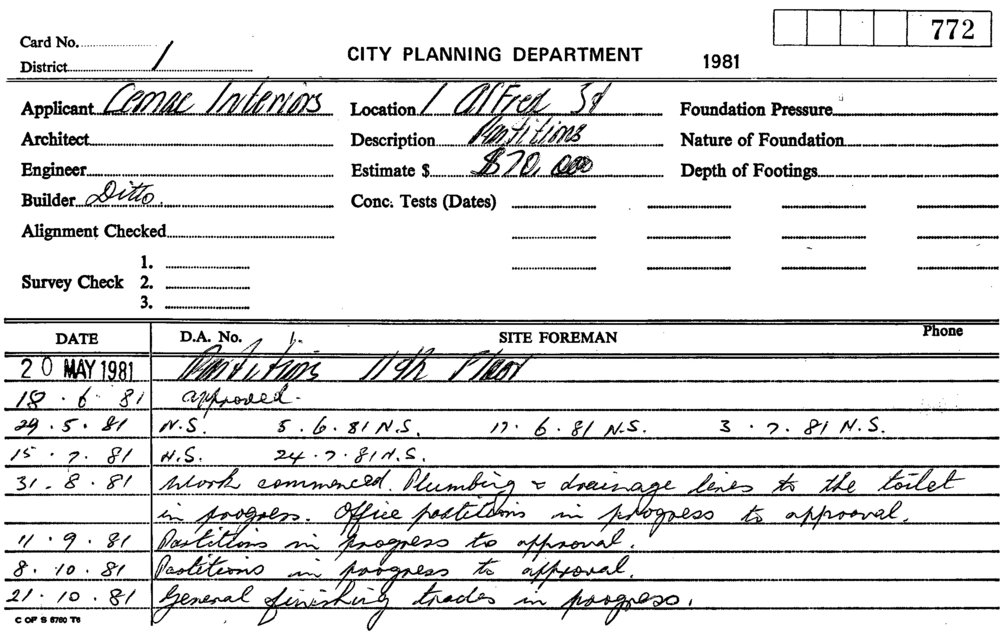 772
Card No.
District 1
CITY PLANNING DEPARTMENT 1981
Applicant Cemac Interiors Location 1 Alfred St Foundation Pressure
Architect Description Partitions Nature of Foundation
Engineer Estimate $ $70,000 Depth of Footings
Builder Ditto. Conc. Tests (Dates)
Alignment Checked
Survey Check 1.
2.
3.
DATE D.A. No. SITE FOREMAN Phone
20 MAY 1981 Partitions 11th Floor
18.6.81 approved.
29.5.81 N.S. 5.6.81 N.S. 17.6.81 N.S. 3.7.81 N.S.
15.7.81 N.S. 24.7.81 N.S.
31.8.81 Work commenced. Plumbing & drainage lines to the toilet
in progress. Office partitions in progress to approval.
11.9.81 Partitions in progress to approval.
8.10.81 Partitions in progress to approval.
21.10.81 General finishing trades in progress.
C OF S 6760 T6